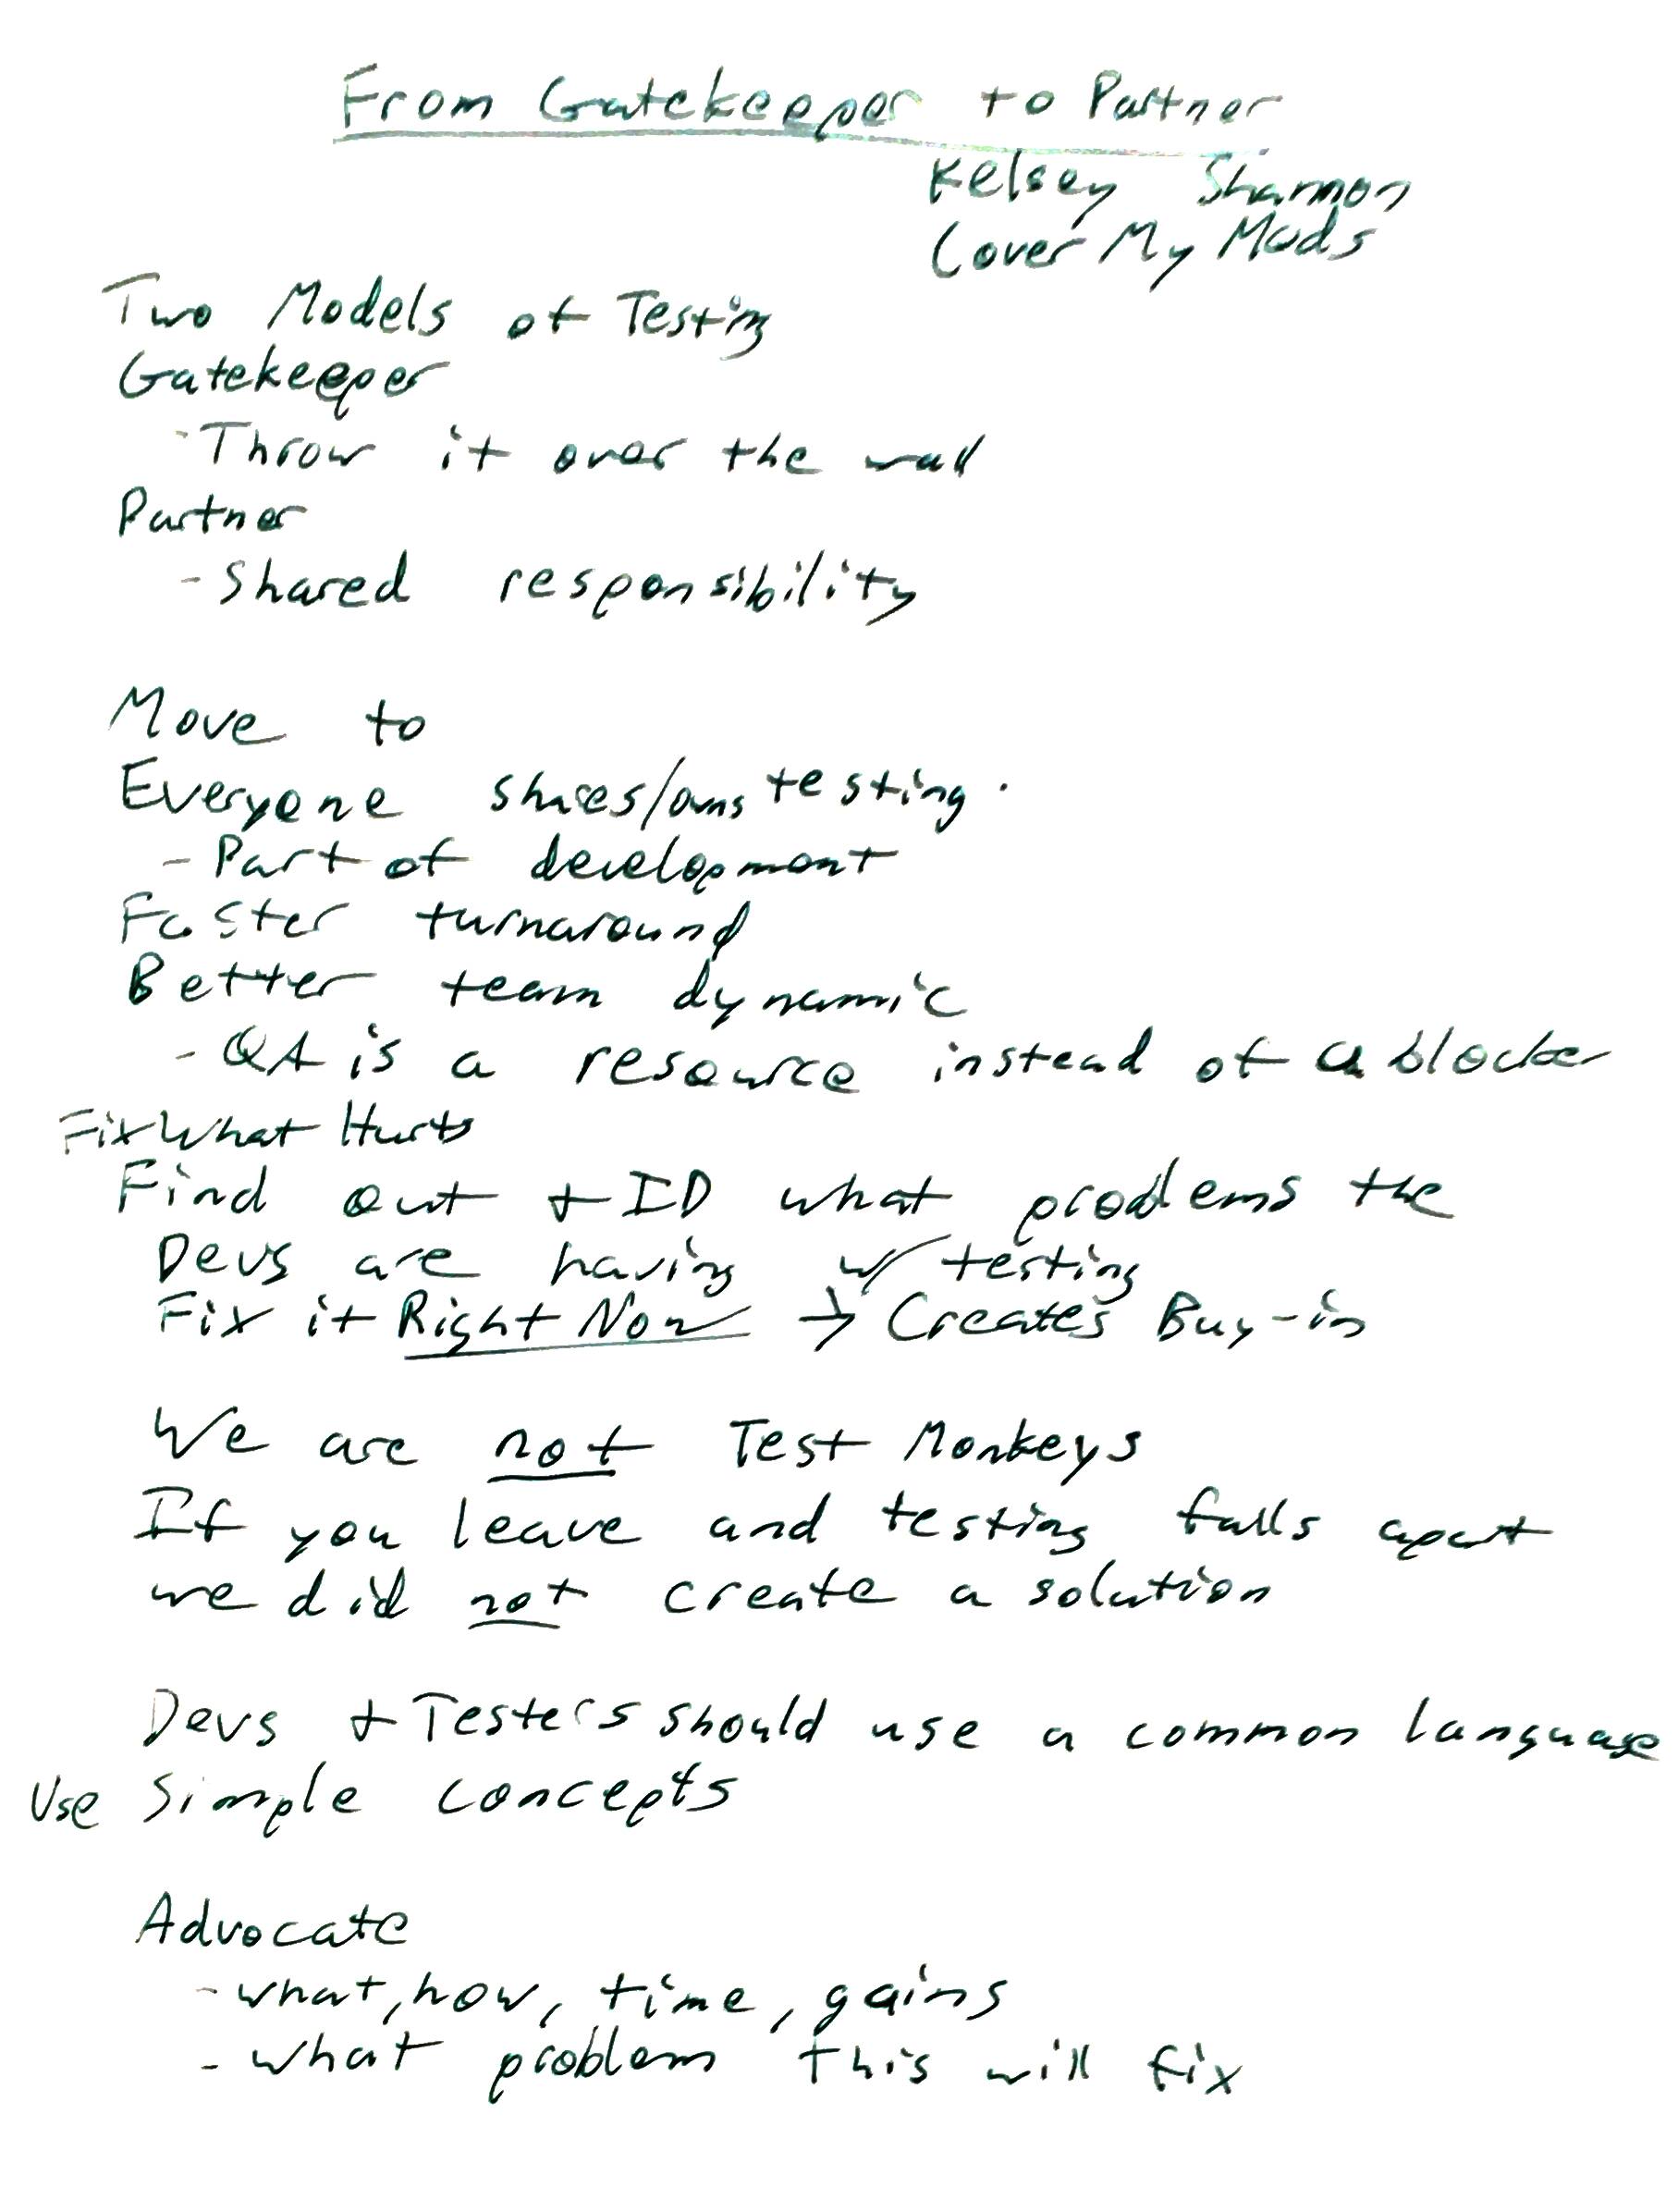 From Gatekeeper to Partner
Kelsey Shannon
CoverMyMeds
Two Models of Testing
Gatekeeper
- Throw it over the wall
Partner
- Shared responsibility
Move to
Everyone shares/owns testing.
- Part of development
Faster turnaround
Better team dynamic
- QA is a resource instead of a blocker
Fix What Hurts
Find out + ID what problems the
Devs are having w/ testing
Fix it Right Now → Creates Buy-in
We are not Test Monkeys
If you leave and testing falls apart
we did not create a solution
Devs + Testers should use a common language
Use Simple concepts
Advocate
- what, how, time, gains
- what problem this will fix